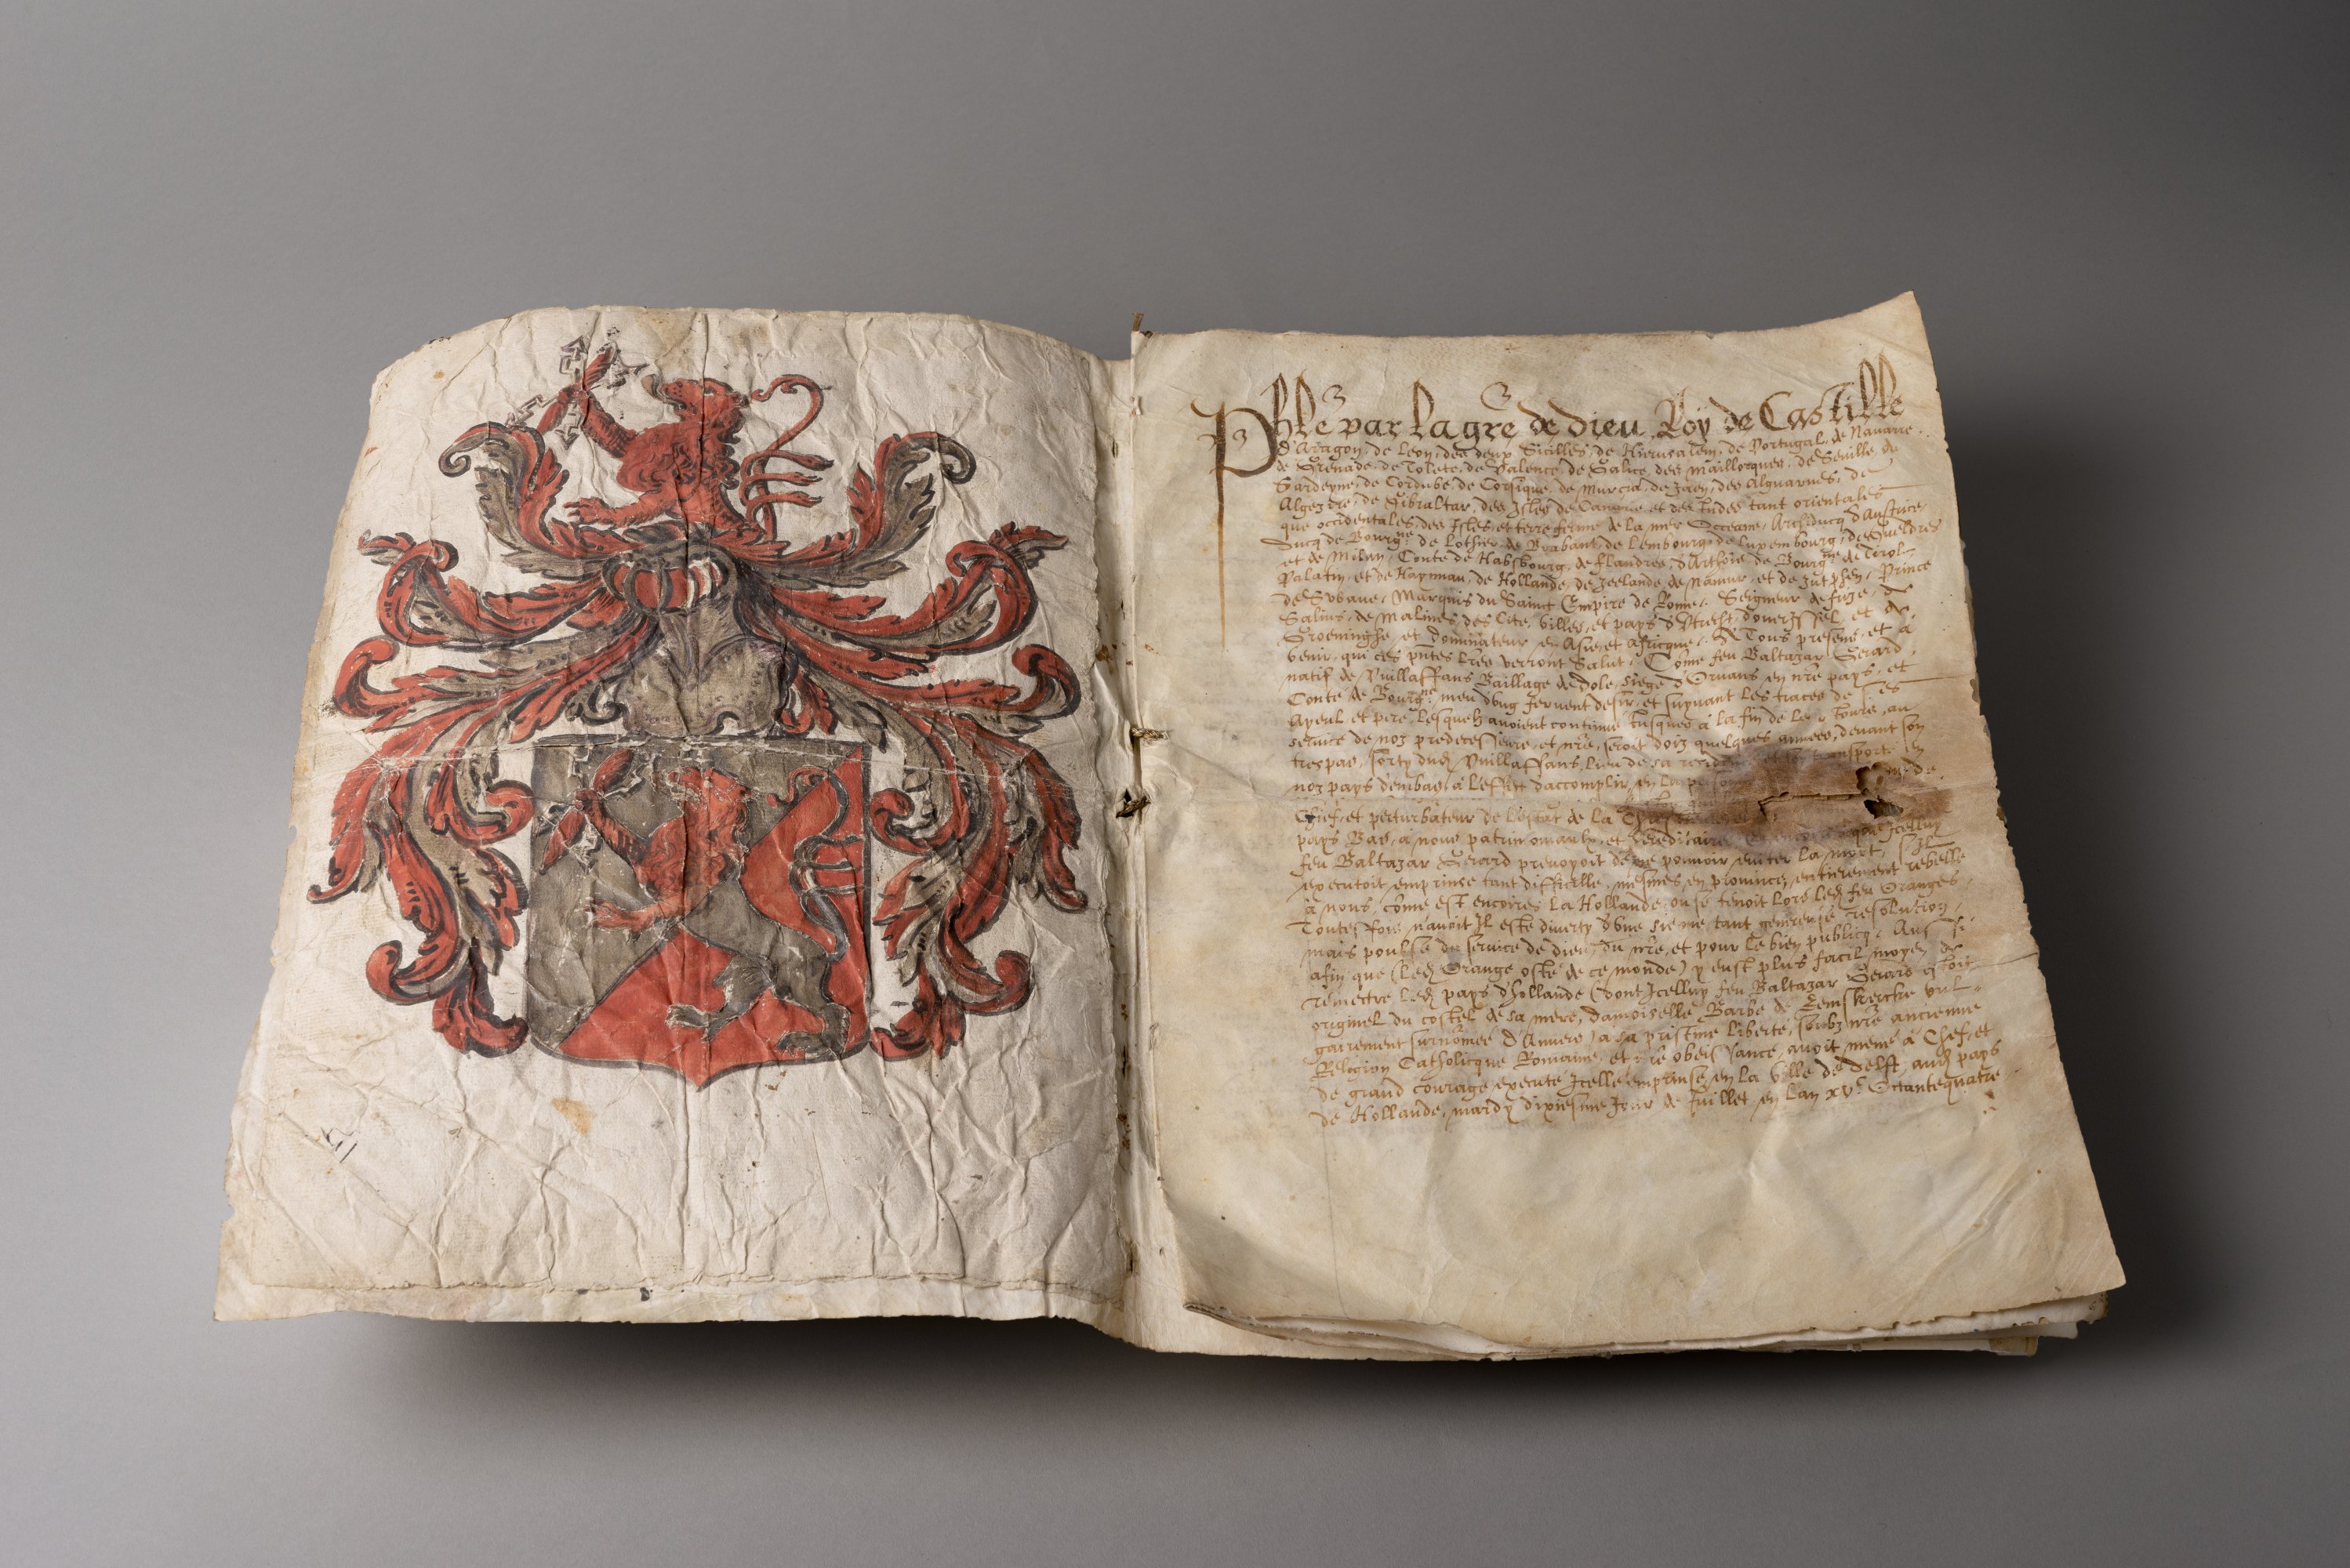 Phle par la gre de dieu Roÿ de Castille
d'Aragon, de Leon, des deux Sicilles, de Hierusalem, de Portugal, de Navarre,
de Grenade, de Tolete, de Valence, de Galice, des Maillorques, de Seuille, de
Sardeyne, de Cordube, de Corsique, de Murcia, de Jaen, des Alguarues, de
Algezire, de Gibraltar, des Isles de Canarie, et des Indes tant orientales
que occidentales, des Isles, et terre ferme de la mer Occeane, Archiducq d'Austrice,
Ducq de Bourgne, de Lothier, de Brabant, de Lembourg, de Luxembourg, de Gueldres
et de Milan, Conte de Habsbourg, de flandres, d'Arthois, de Bourgne, de Tirol,
Palatin, et de Haynnau, de Hollande, de Zeelande, de Namur, et de Zutphen, Prince
de Svbaue, Marquis du Sainct Empire de Rome, Seigneur de frize, de
Salins, de Malines, des Cite, Villes, et pays d'Vtrecht, d'oueryssel, et de
Groeninghe, et dominateur en Asie, et Africque. A Tous presens, et à
venir, qui ces pntes lres verront Salut. Come feu Baltazar Gerard
natif de Vuillaffans Baillage de dole, siege d'Ornans en nre pays, et
Conte de Bourgne, meu d'vng feruent desir, et suyuant les traces de ses
Ayeul, et pere, lesquelz auoient continué jusques à la fin de leur jours, au
seruice de noz predecesseurs, et nre, seroit doiz quelques annees, deuant son
trespas, sorty dud Vuillaffans, lieu de sa et transporté en
noz pays d'embas, à l'effect d'accomplir, en la
Chief, et perturbateur de l'estat de la
pays Bas, à nous patrimoniaulx, et hereditaire que Icelluy
feu Baltazar Gerard preuoyoit de ne pouuoir euiter la mort, s'Il
executoit emprinse tant difficille, mesmes en prouince, entierement rebelle
à nous, come est encoires la Hollande, ou se tenoit lors led feu Oranges,
Toutesfois n'auoit Il esté diuerty d'vne sienne tant genereuse resolution,
mais poulsé du seruice de dieu, du nre, et pour le bien publicq, Aussi
afin que (led Orange osté de ce monde) y eust plus facil moyen de
remectre led pays d'hollande (dont Icelluy feu Baltazar Gerard estoit
originel du costel de sa mere, damoiselle Barbe de Eemskercke vul=
gairement surnomée d'Anuers) a sa pristine liberté, soubz nre ancienne
Religion Catholicque Romaine, et nre obeissance, auoit mené à Chef, et
de grand courage executé Icelle emprinse, en la Ville de delft, aud pays
de Hollande, mardy dixiesme jour de Juillet en l'an xvc Octantequatre